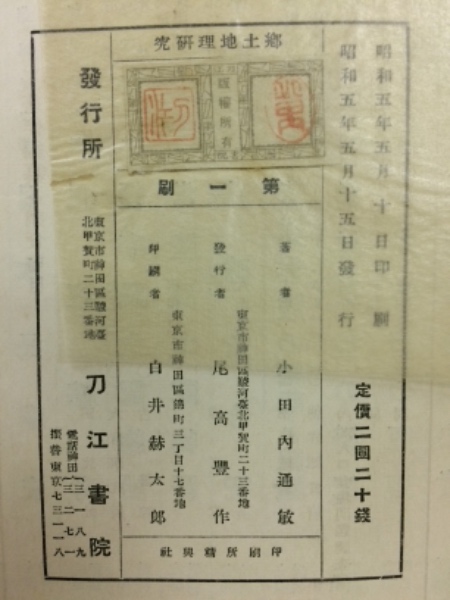 昭和五年五月十日印刷
昭和五年五月十五日發行
定價二圓二十錢
究硏理地土鄕
版權所有
刷一第
著者 小田內通敏
東京市神田區駿河臺北甲賀町二十三番地
發行者 尾高豐作
東京市神田區錦町三丁目十七番地
印刷者 白井赫太郞
社興精所刷印
發行所
東京市神田區駿河臺
北甲賀町二十三番地
刀江書院
電話神田
振替東京七三一一八